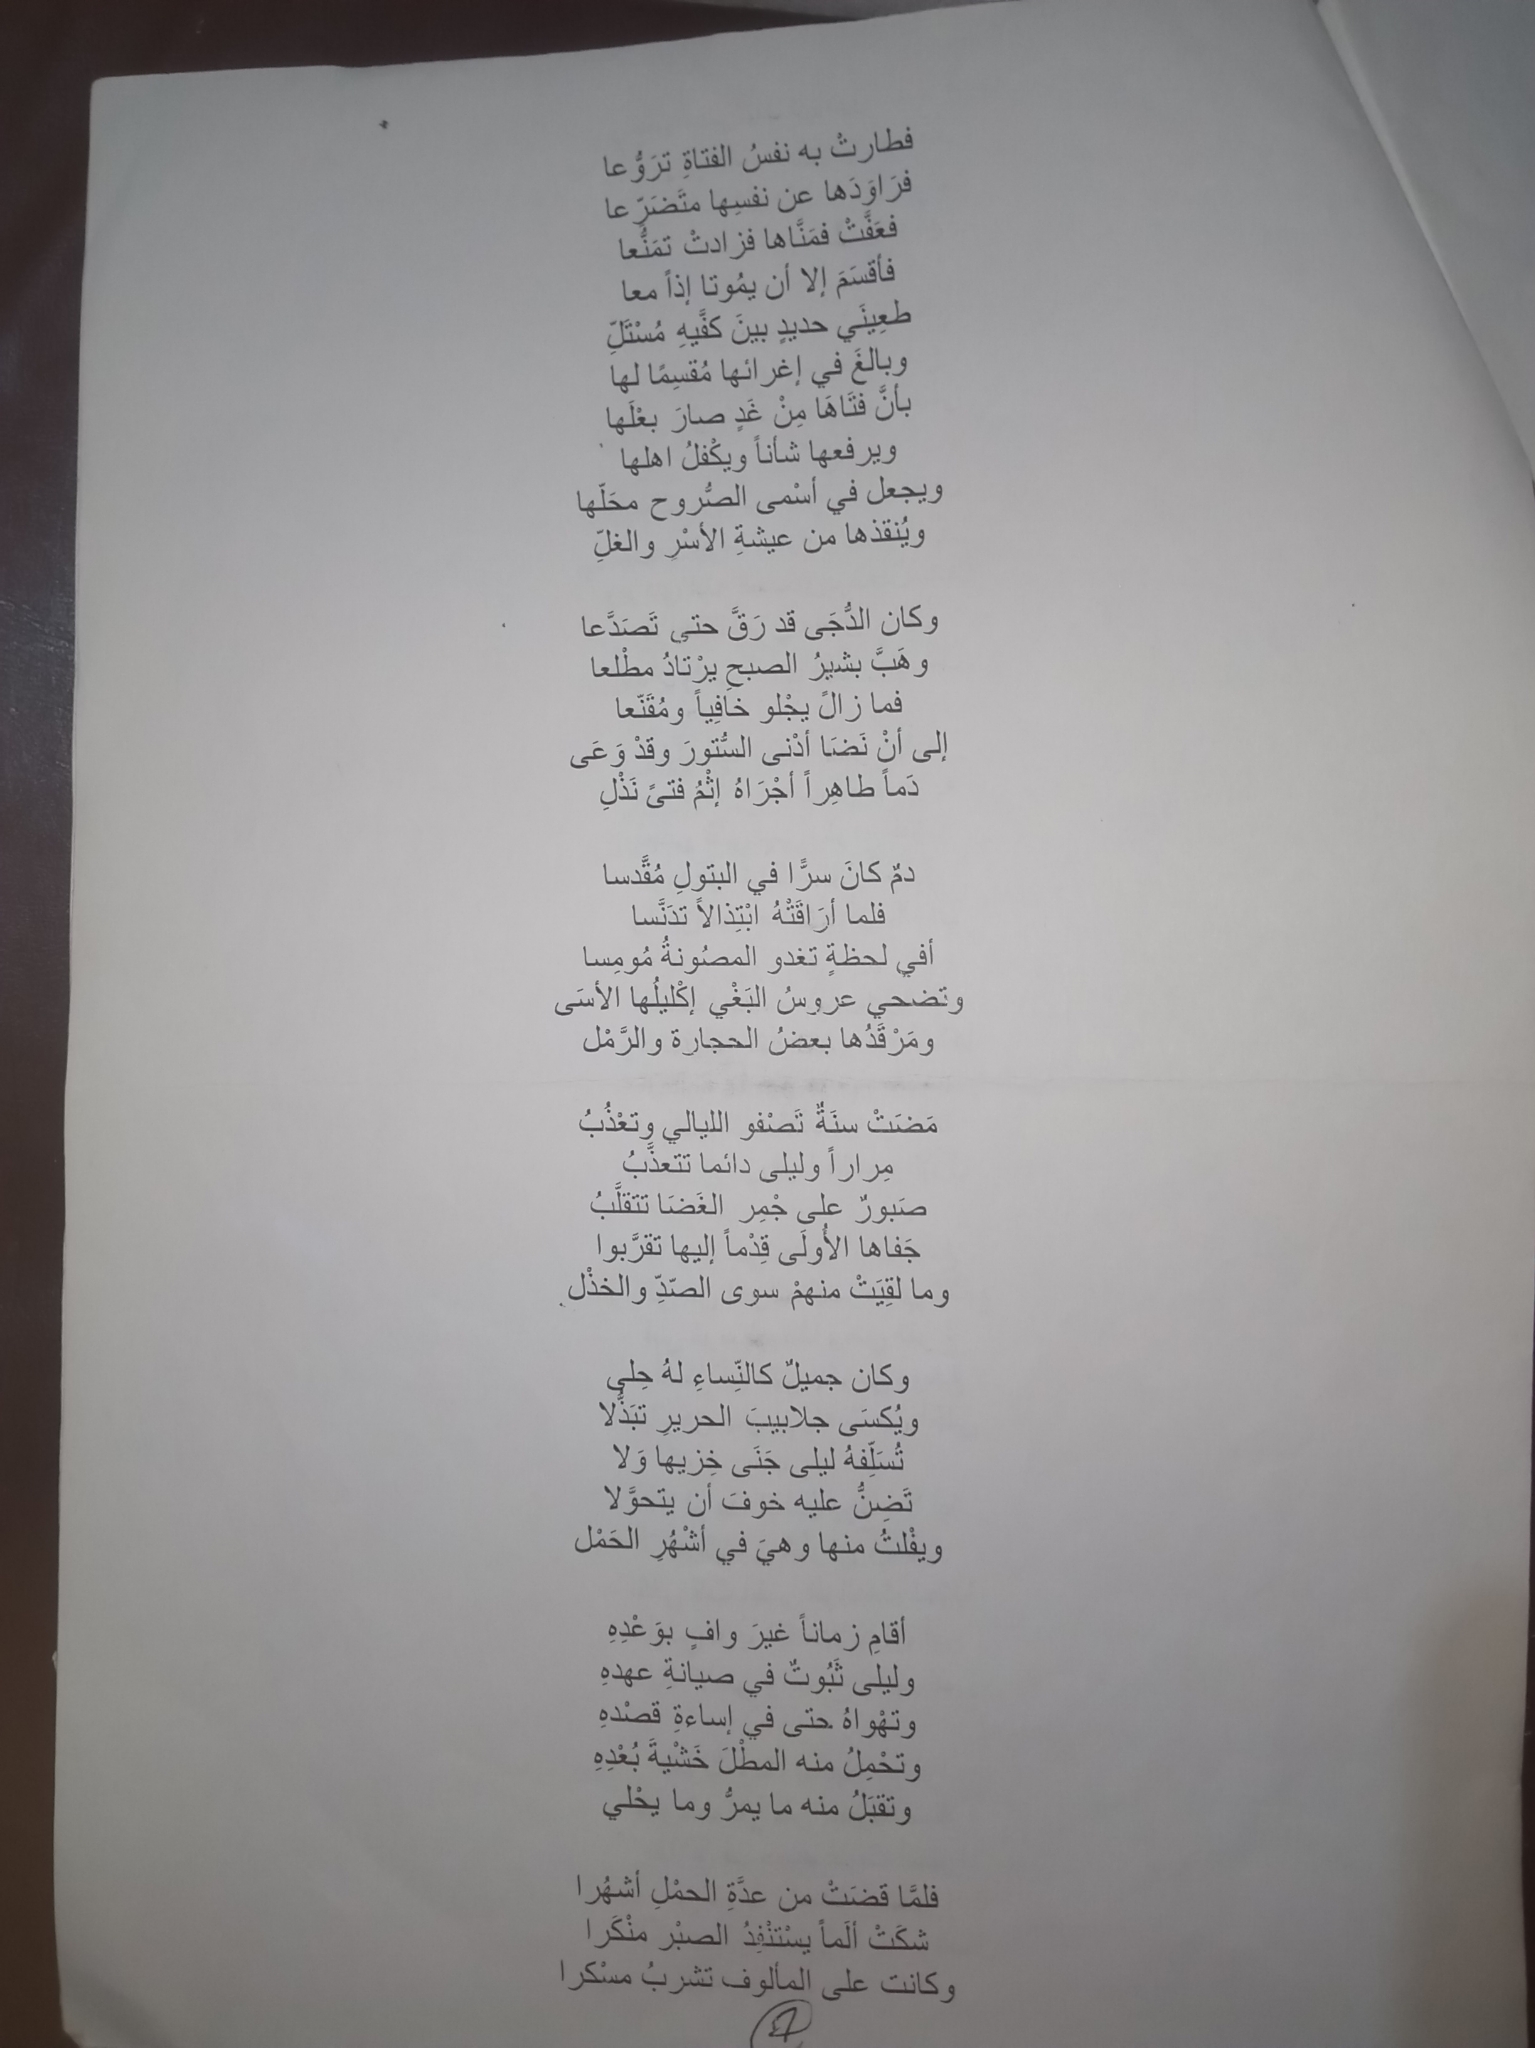 فطارتْ به نفسُ الفتاةِ تَرَوُّعا
فرَاوَدَها عن نفسِها متَضَرّعا
فعَفَّتْ فمَنَّاها فزادتْ تمَنُّعا
فأقسَمَ إلا أن يمُوتا إذاً معا
طعِينَي حديدٍ بينَ كفَّيهِ مُسْتَلِّ
وبالغَ في إغرائها مُقسِمًا لها
بأنَّ فتَاهَا مِنْ غَدٍ صارَ بعْلَها
ويرفعها شأناً ويكْفلُ اهلها
ويجعل في أسْمى الصُّروح محَلّها
ويُنقذها من عيشةِ الأسْرِ والغلِّ
وكان الدُّجَى قد رَقَّ حتى تَصَدَّعا
وهَبَّ بشيرُ الصبحِ يرْتادُ مطْلعا
فما زالً يجْلو خافِياً ومُقَنّعا
إلى أنْ نَضَا أدْنى السُّتورَ وقدْ وَعَى
دَماً طاهِراً أجْرَاهُ إثْمُ فتىً نَذْلِ
دمٌ كانَ سرًّا في البتولِ مُقَّدسا
فلما أرَاقَتْهُ ابْتِذالاً تدَنَّسا
أفي لحظةٍ تغدو المصُونةُ مُومِسا
وتضحي عروسُ البَغْي إكْليلُها الأسَى
ومَرْقَدُها بعضُ الحجارة والرَّمْل
مَضَتْ سنَةٌ تَصْفو الليالي وتعْذُبُ
مِراراً وليلى دائما تتعذَّبُ
صَبورٌ على جْمِر الغَضَا تتقلَّبُ
جَفاها الأُولَى قِدْماً إليها تقرَّبوا
وما لقِيَتْ منهمْ سوى الصّدِّ والخذْل
وكان جميلٌ كالنِّساءِ لهُ حِلى
ويُكسَى جلابيبَ الحريرِ تبَذُّلا
تُسَلِّفهُ ليلى جَنَى خِزيها وَلا
تَضِنُّ عليه خوفَ أن يتحوَّلا
ويفْلتُ منها وهيَ في أشْهُرِ الحَمْل
أقامِ زماناً غيرَ وافٍ بوَعْدِهِ
وليلى ثَبُوتٌ في صيانةِ عهدهِ
وتهْواهُ حتى في إساءةِ قصْدهِ
وتحْمِلُ منه المطْلَ خَشْيةَ بُعْدِهِ
وتقبَلُ منه ما يمرُّ وما يحْلي
فلمَّا قضَتْ من عدَّةِ الحمْلِ أشهُرا
شكَتْ ألَماً يسْتنْفِدُ الصبْر منْكَرا
وكانت على المألوف تشربُ مسْكرا